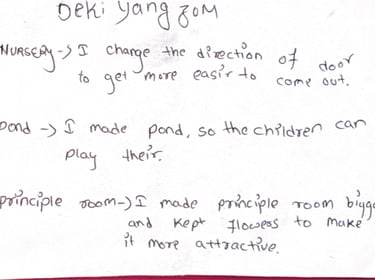 Deki Yangzom
NURSERY -> I change the direction of door
to get more easir to come out.
pond -> I made pond, so the children can
play their.
principle room -> I made principle room bigge
and kept flowess to make
it more attractive.